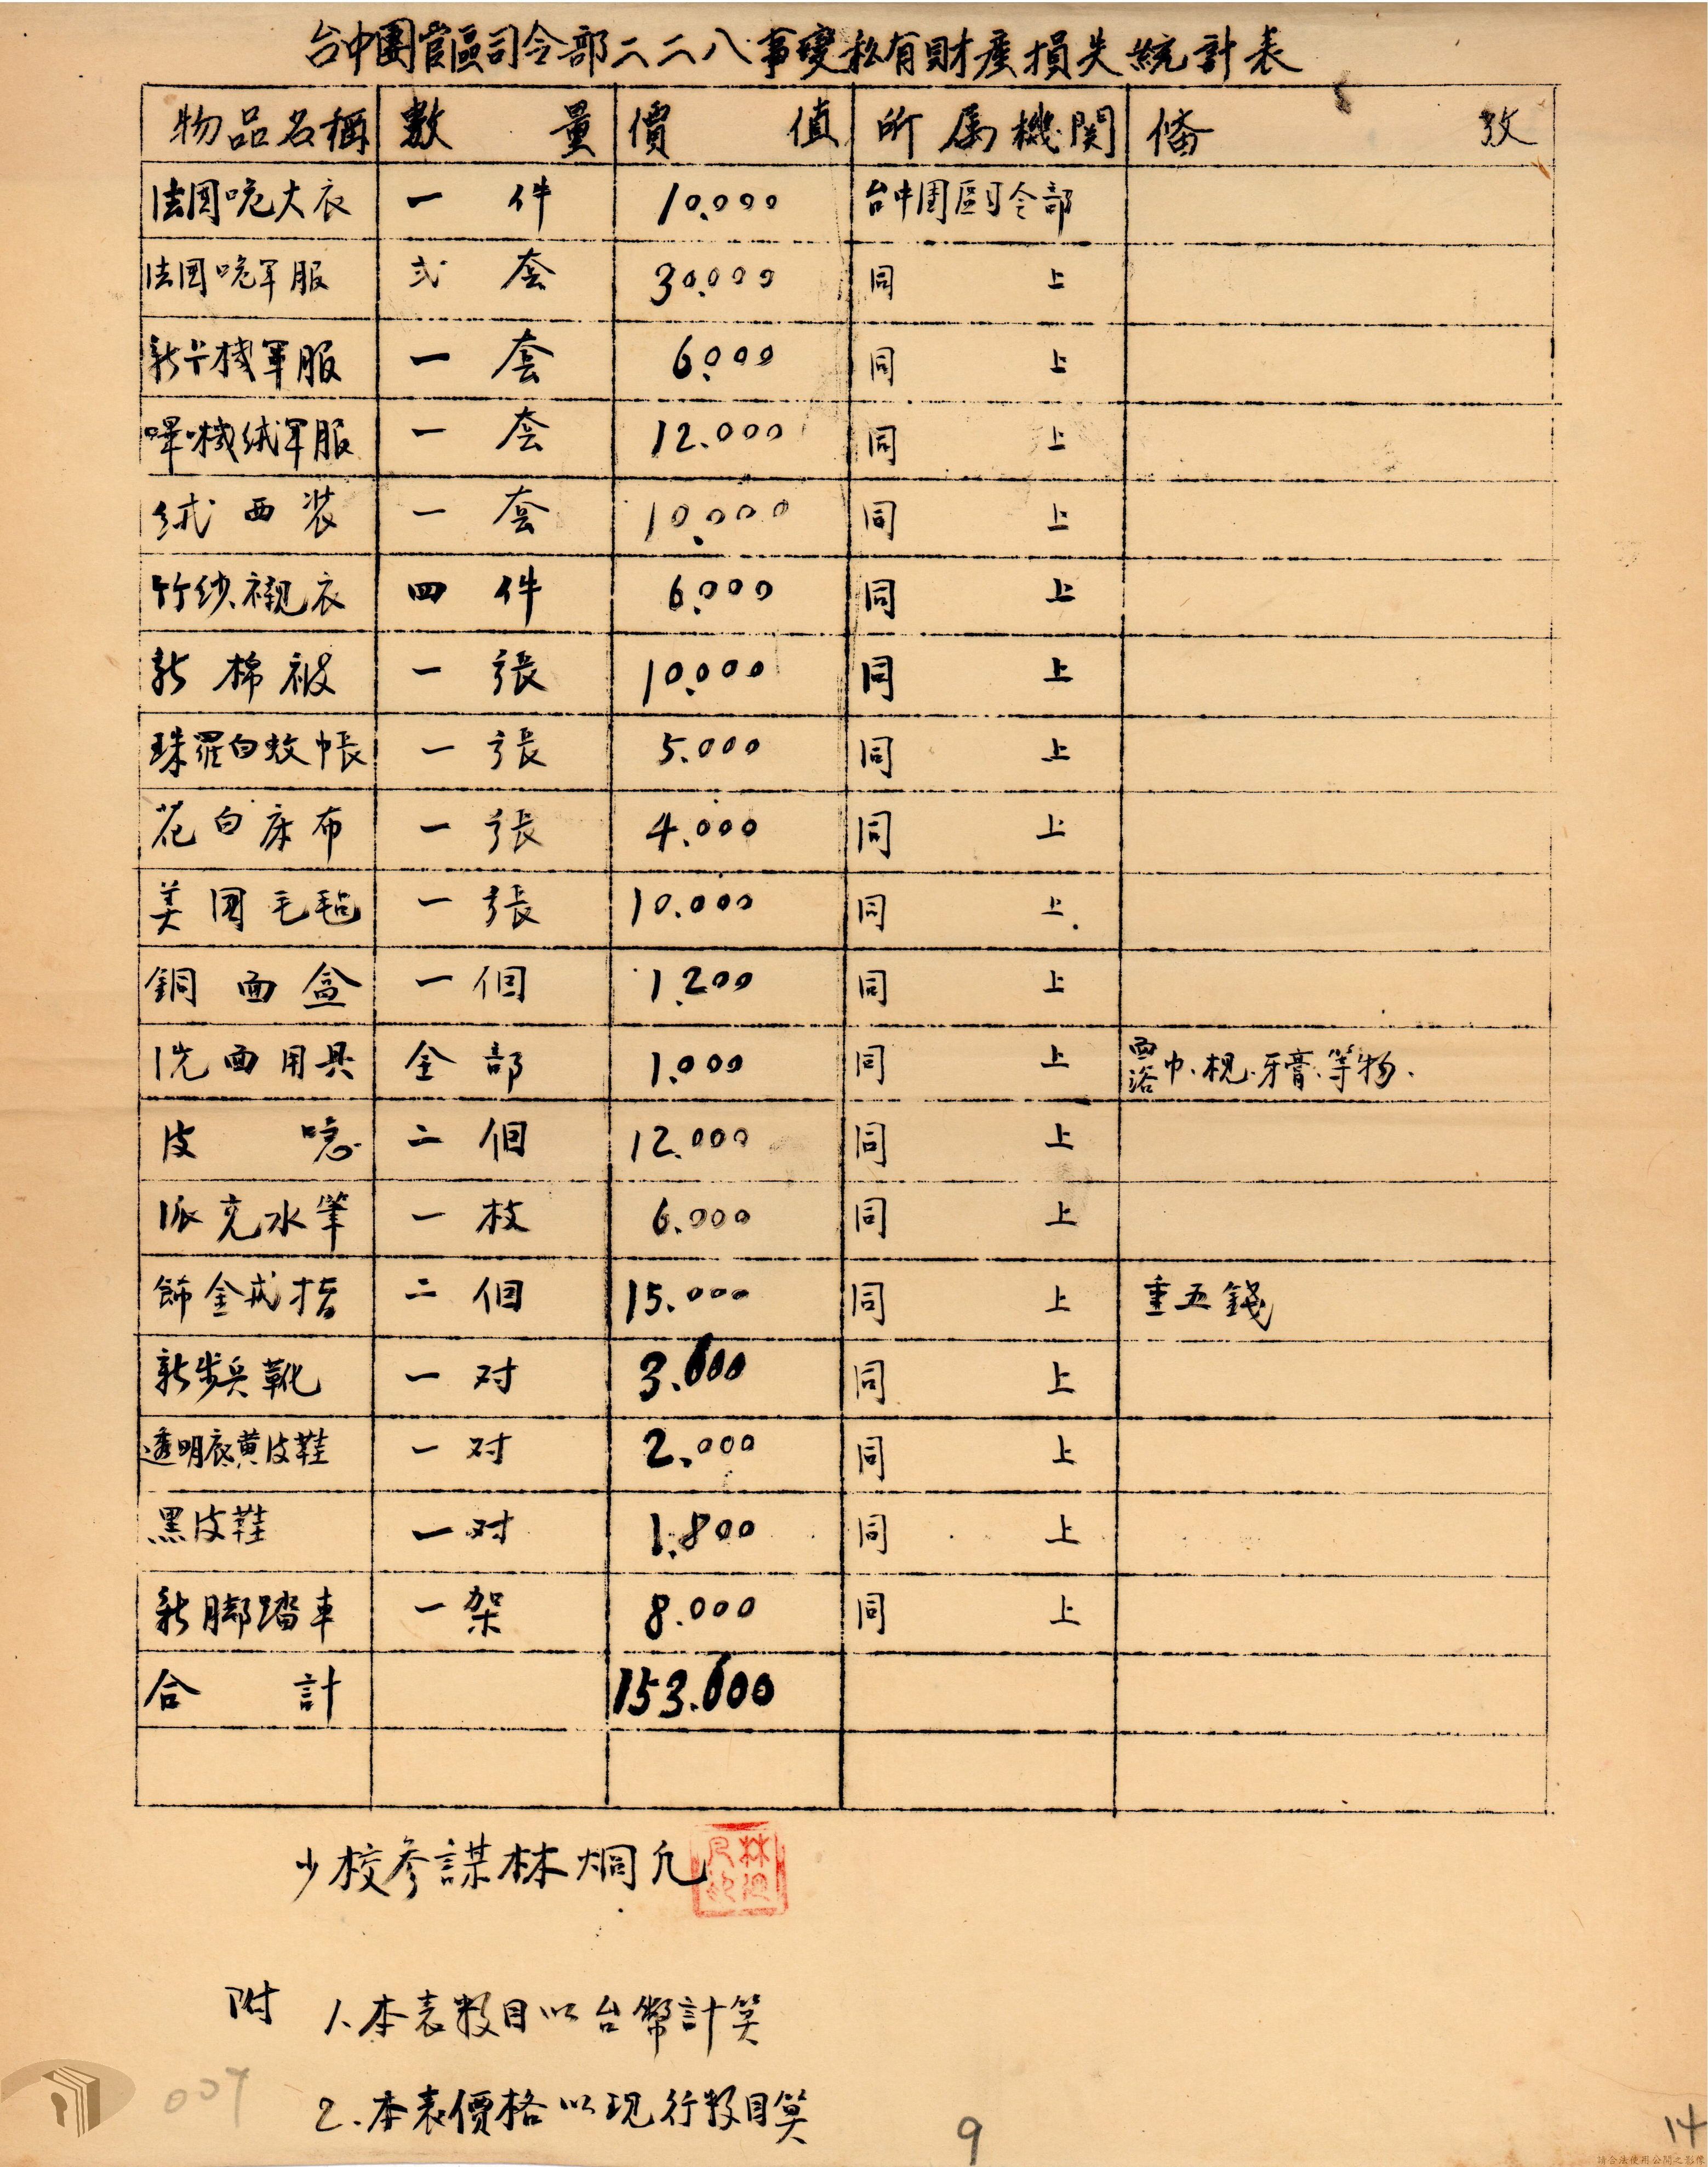 台中團管區司令部二二八事變私有財產損失統計表
物品名稱 數量 價值 所屬機関 偹攷
法國呢大衣 一件 10.000 台中团區司令部
法国呢軍服 弍套 30.000 同上
新卡機軍服 一套 6.000 同上
嗶嘰絨軍服 一套 12.000 同上
絨西裝 一套 10.000 同上
竹纱襯衣 四件 6.000 同上
新棉被 一張 10.000 同上
珠羅白蚊帳 一張 5.000 同上
花白床布 一張 4.000 同上
美国毛毡 一張 10.000 同上
銅面盆 一個 1.200 同上
洗面用具 全部 1.000 同上 面浴巾、梘、牙膏、等物.
皮 二個 12.000 同上
派克水筆 一枝 6.000 同上
飾金戒指 二個 15.000 同上 重五錢
新步兵靴 一对 3.600 同上
透明底黄皮鞋 一对 2.000 同上
黑皮鞋 一对 1.800 同上
新脚踏車 一架 8.000 同上
合計 153.600
少校参謀林烱
附 1.本表数目以台幣計算
2.本表價格以現行数目算
007
9
14
請合法使用公開之影像